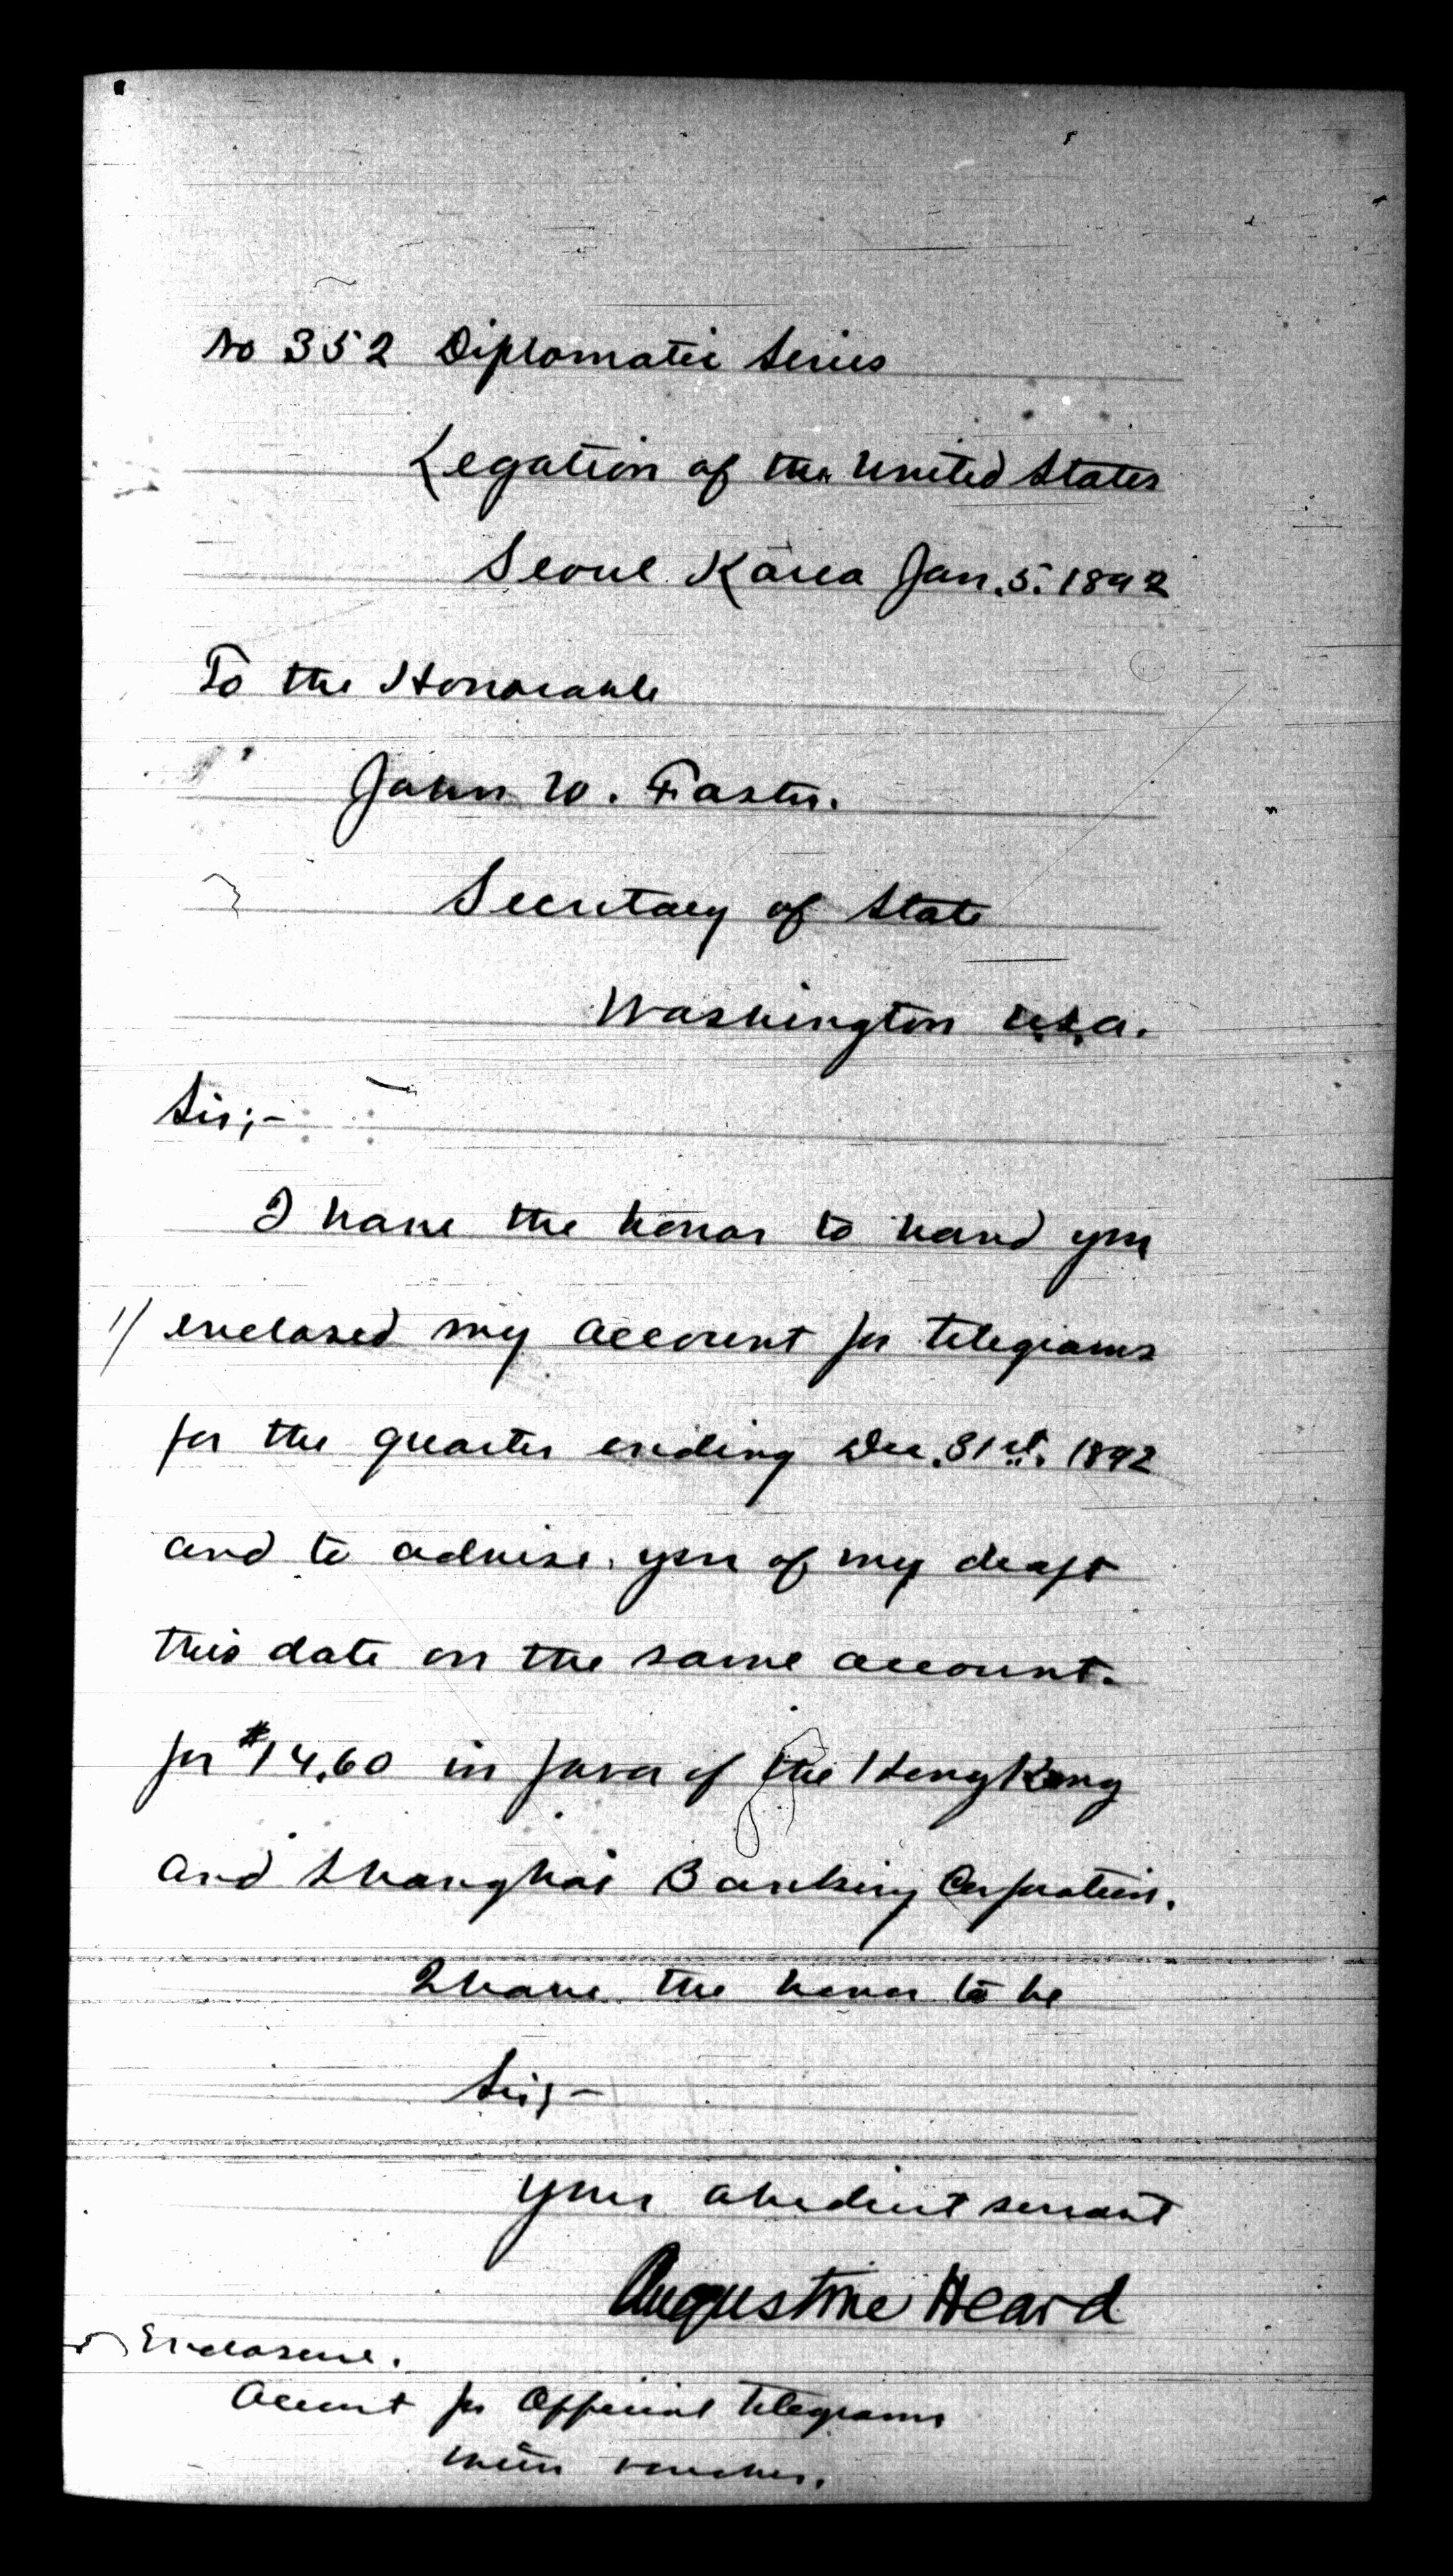 No 352 Diplomatic Series
Legation of the United States
Seoul Korea Jan. 5. 1892
To the Honorable
John W. Foster.
Secretary of State
Washington U.S.A.
Sir;-
I have the honor to hand you
1/ enclosed my account for telegrams
for the quarter ending Dec. 31st. 1892
and to advise you of my draft
this date on the same account.
for $14.60 in favor of the HongKong
and Shanghai Banking Corporation.
I have the honor to be
Sir;-
Your obedient servant
Augustine Heard
Enclosure.
Account for Official Telegrams
with voucher.